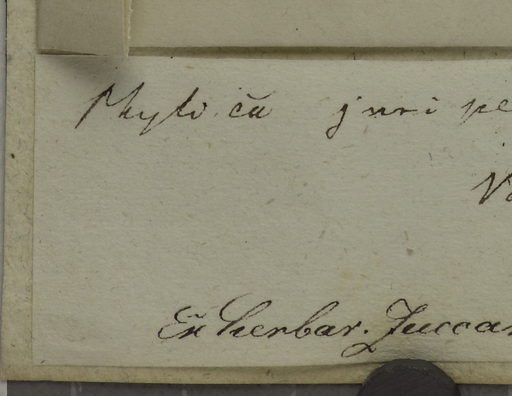 Phylica juni pe
Ex herbar. Zuccar